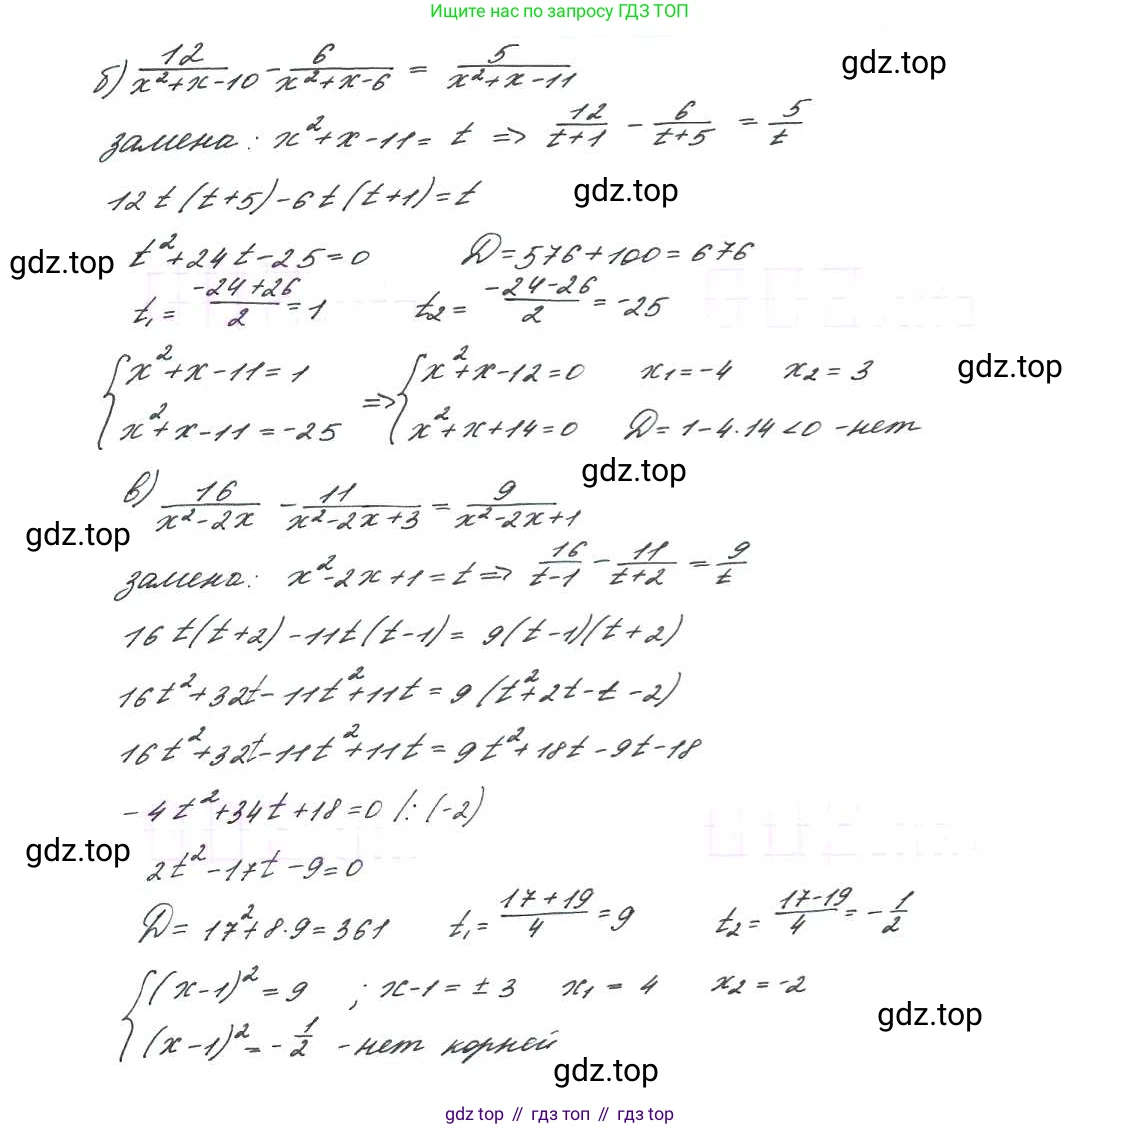 Ищите нас по запросу ГДЗ ТОП
б) 12/(x²+x-10) - 6/(x²+x-6) = 5/(x²+x-11) gdz.top
замена: x²+x-11=t => 12/(t+1) - 6/(t+5) = 5/t
12t(t+5)-6t(t+1)=t gdz.top
gdz.top t²+24t-25=0 D=576+100=676
t₁=(-24+26)/2=1 t₂=(-24-26)/2=-25
{x²+x-11=1 => {x²+x-12=0 x₁=-4 x₂=3 gdz.top
{x²+x-11=-25 {x²+x+14=0 D=1-4·14<0 -нет
gdz.top
в) 16/(x²-2x) - 11/(x²-2x+3) = 9/(x²-2x+1)
gdz.top
замена: x²-2x+1=t => 16/(t-1) - 11/(t+2) = 9/t
16t(t+2)-11t(t-1)=9(t-1)(t+2)
16t²+32t-11t²+11t=9(t²+2t-t-2)
16t²+32t-11t²+11t=9t²+18t-9t-18
-4t²+34t+18=0 /:(-2)
gdz.top 2t²-17t-9=0
D=17²+8·9=361 t₁=(17+19)/4=9 t₂=(17-19)/4=-1/2
{(x-1)²=9 ; x-1=±3 x₁=4 x₂=-2
gdz.top
{(x-1)²=-1/2 -нет корней
gdz.top
gdz top // гдз топ // gdz top